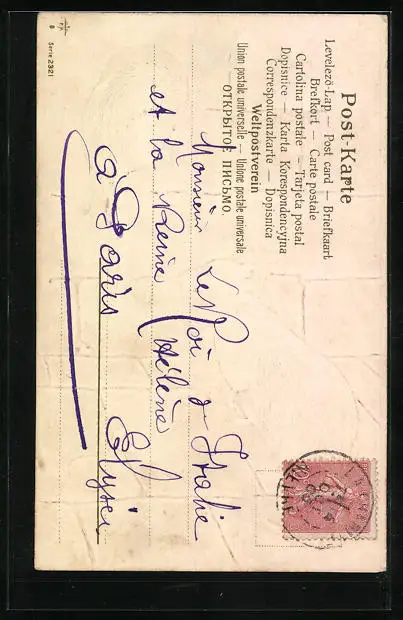 Post-Karte
Levelező-Lap — Post card — Briefkaart
Brefkort — Carte postale
Cartolina postale — Tarjeta postal
Dopisnice — Karta Korespondencyjna
Correspondenzkarte — Dopisnica
Weltpostverein
— ОТКРЫТОЕ ПИСЬМО —
Union postale universelle — Unione postale universale
Monsieur Le Roi d Italie
et la Reine Hélène
a Paris Elysée
Serie 2321